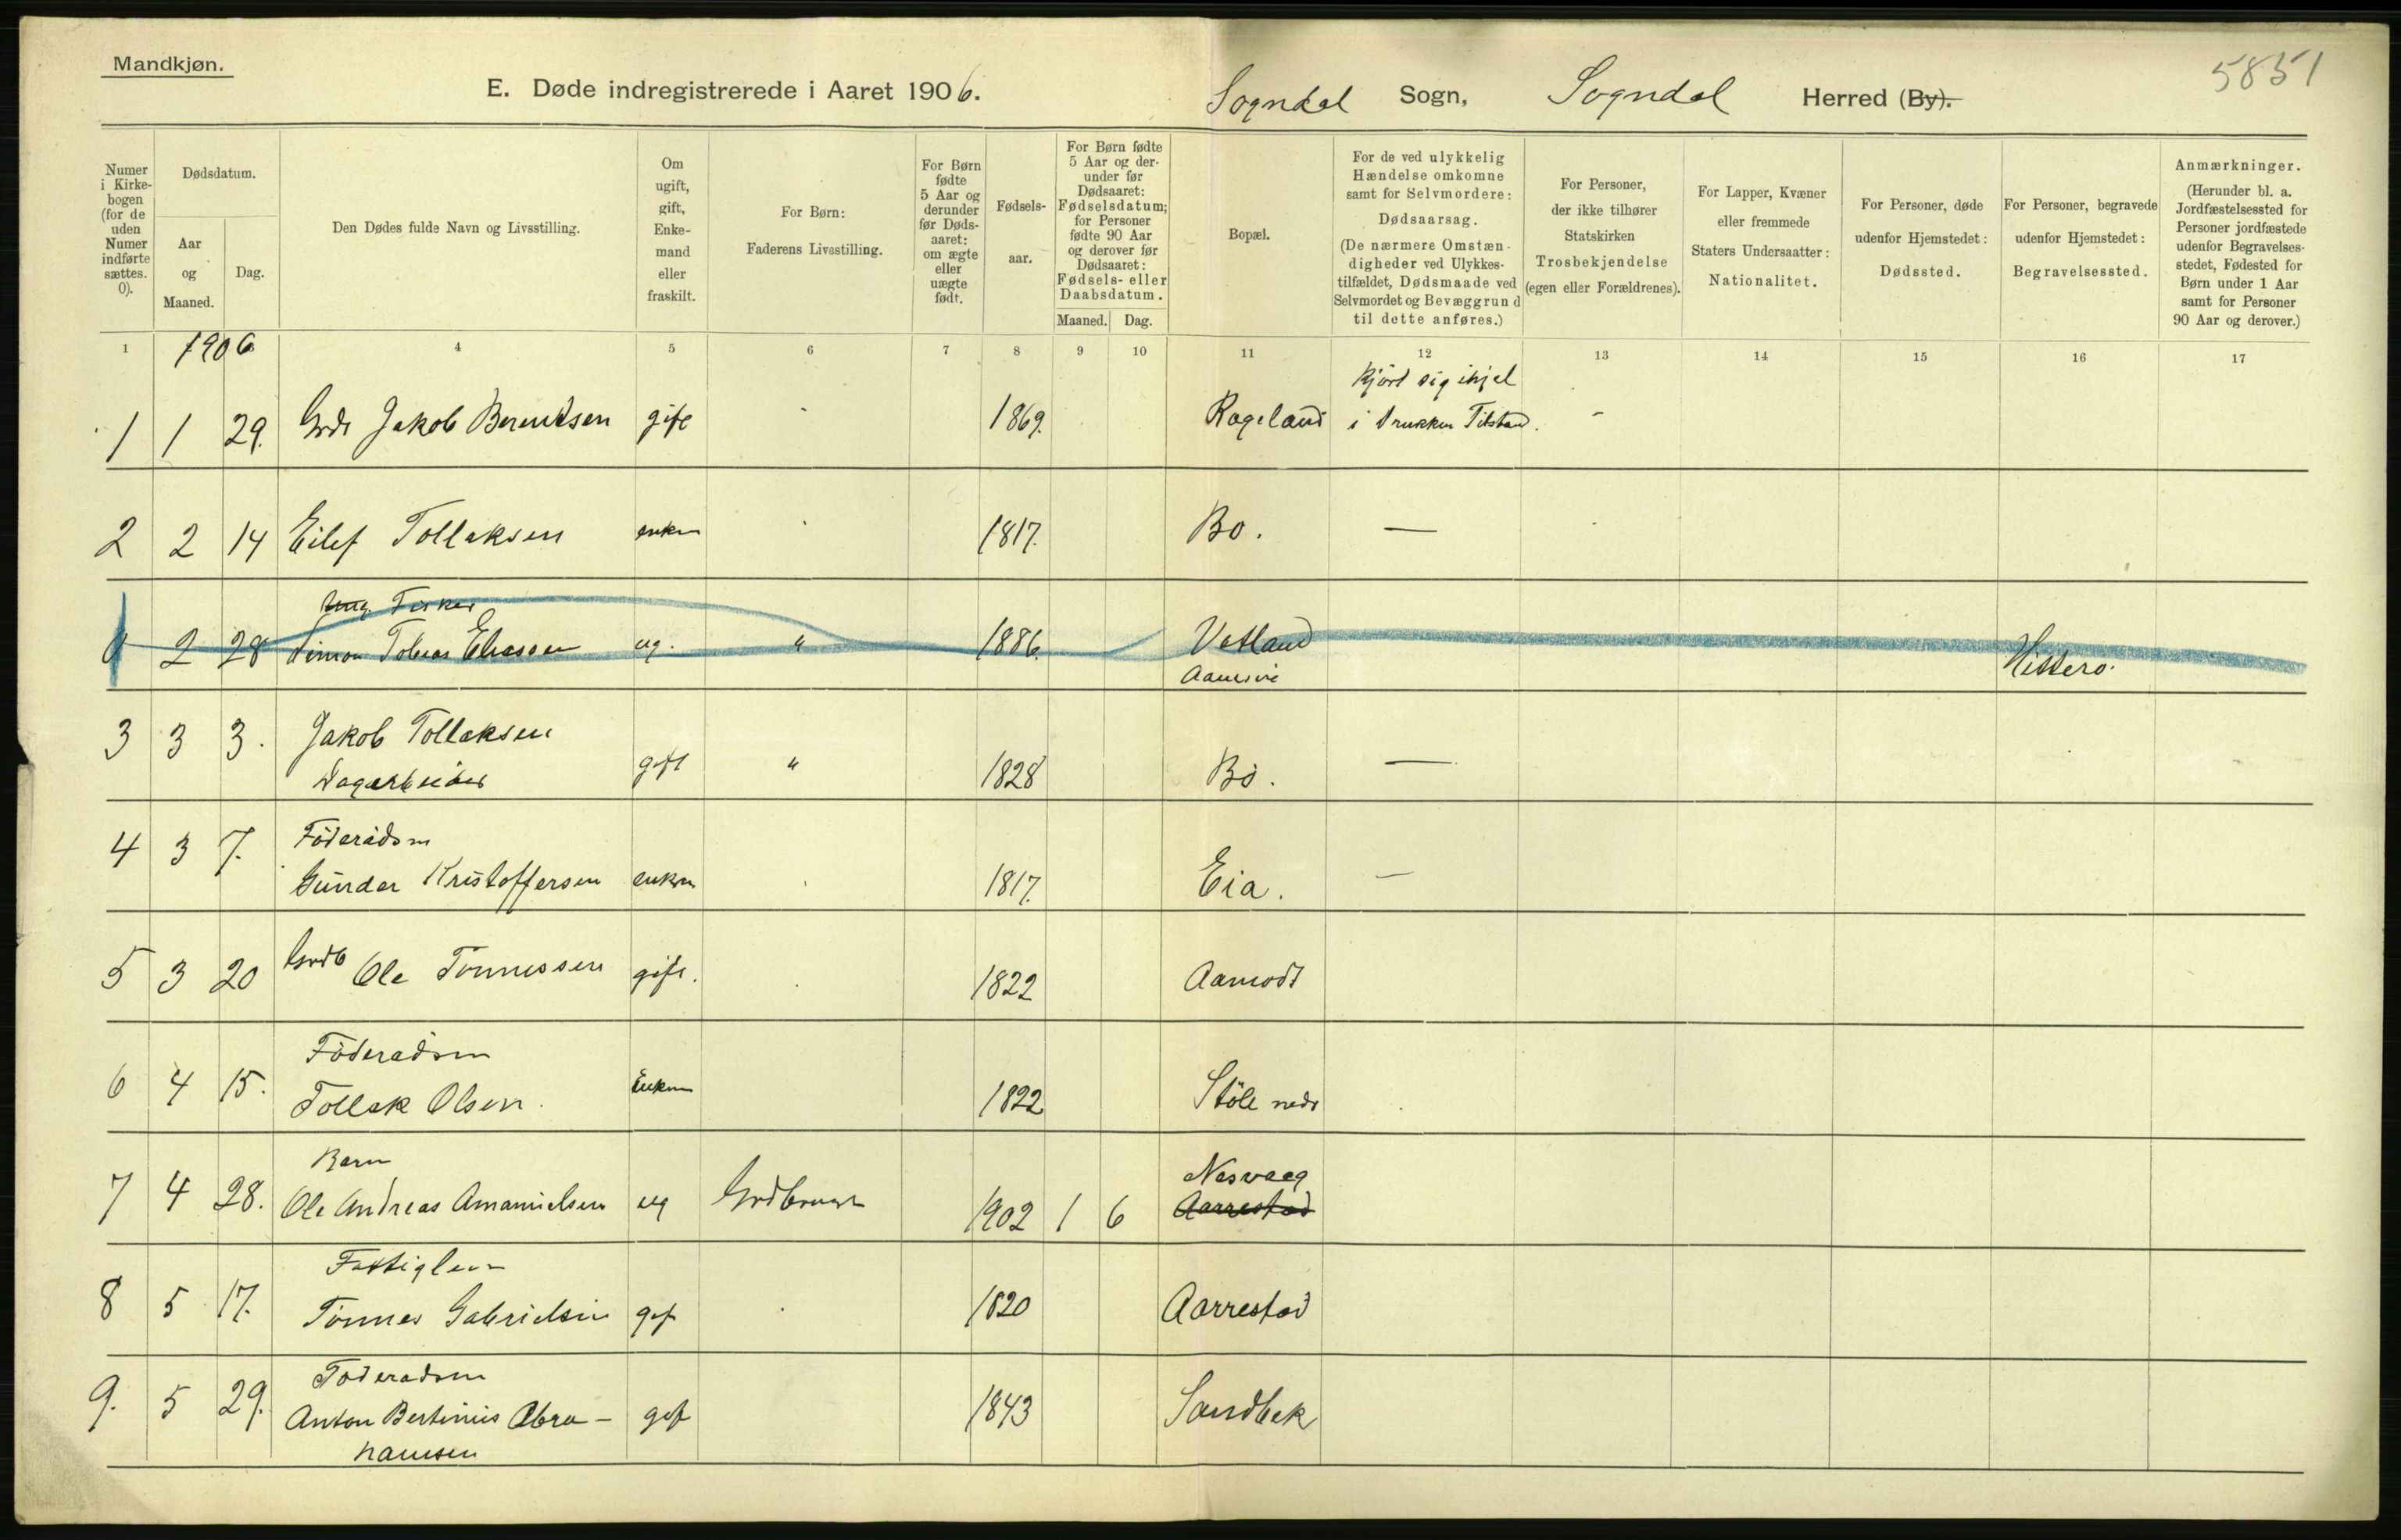 Mandkjøn.
5851
E. Døde indregistrerede i Aaret 1906.
Sogndal Sogn, Sogndal Herred (By).
Numer
i Kirke-
bogen
(for de
uden
Numer
indførte
sættes.
0).
Dødsdatum.
Aar
og
Maaned.
Dag.
Den Dødes fulde Navn og Livsstilling.
Om
ugift,
gift,
Enke-
mand
eller
fraskilt.
For Børn:
Faderens Livsstilling.
For Børn
fødte
5 Aar og
derunder
før Døds-
aaret:
om ægte
eller
uægte
født.
Fødsels-
aar.
For Børn fødte
5 Aar og der-
under før
Dødsaaret:
Fødselsdatum;
for Personer
fødte 90 Aar
og derover før
Dødsaaret:
Fødsels- eller
Daabsdatum.
Maaned. Dag.
Bopæl.
For de ved ulykkelig
Hændelse omkomne
samt for Selvmordere:
Dødsaarsag.
(De nærmere Omstæn-
digheder ved Ulykkes-
tilfældet, Dødsmaade ved
Selvmordet og Bevæggrund
til dette anføres.)
For Personer,
der ikke tilhører
Statskirken
Trosbekjendelse
(egen eller Forældrenes).
For Lapper, Kvæner
eller fremmede
Staters Undersaatter:
Nationalitet.
For Personer, døde
udenfor Hjemstedet:
Dødssted.
For Personer, begravede
udenfor Hjemstedet:
Begravelsessted.
Anmærkninger.
(Herunder bl. a.
Jordfæstelsessted for
Personer jordfæstede
udenfor Begravelses-
stedet, Fødested for
Børn under 1 Aar
samt for Personer
90 Aar og derover.)
1 4 5 6 7 8 9 10 11 12 13 14 15 16 17
1906
kjørt sig ihjel
1 1 29. Grdr Jakob Berentsen gift 1869. Rageland i drukken Tilstand. -
2 2 14 Eilef Tollaksen enkm 1817. Bö. —
Ung. Fisker
0 2 28 Simon Tobias Eliassen ug. " 1886. Vatland Hitterø.
Aamsvi
3 3 3. Jakob Tollaksen
Dagarbeider gift " 1828 Bö. —
4 3 7. Föderådsm
Gunder Kristoffersen enkm 1817. Eia. —
5 3 20 Grdb Ole Tönnessen gift. 1822 Aamodt
Föderådsm
6 4 15. Tollak Olsen. Enkm 1822 Stöle nedr
Barn Nesvaag
7 4 28. Ole Andreas Amanielsen ug Grdbruger 1902 1 6 Aarrestad
Fattiglem
8 5 17. Tönnes Gabrielsen gif 1820 Aarrestad
Föderadsm
9. 5 29. Anton Bertinius Abra- gif 1843 Sandbek
hamsen